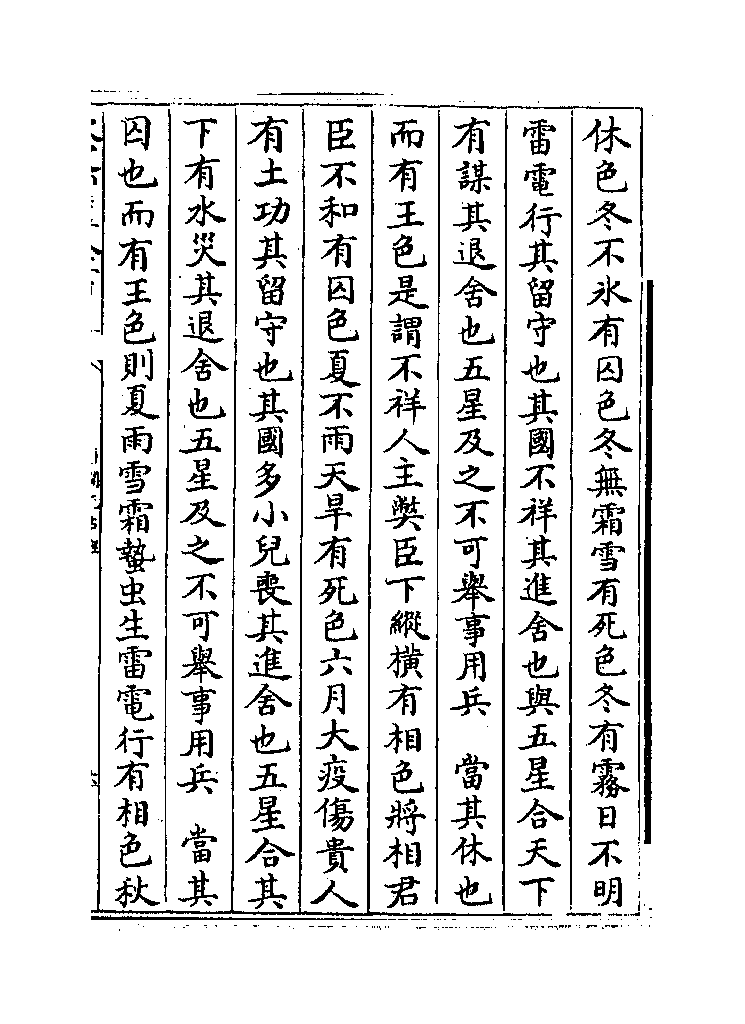 休色冬不氷有囚色冬無霜雪有死色冬有霧日不明
雷電行其留守也其國不祥其進舍也與五星合天下
有謀其退舍也五星及之不可舉事用兵　當其休也
而有王色是謂不祥人主獘臣下縱横有相色將相君
臣不和有囚色夏不雨天旱有死色六月大疫傷貴人
有土功其留守也其國多小兒喪其進舍也五星合其
下有水災其退舍也五星及之不可舉事用兵　當其
囚也而有王色則夏雨雪霜蟄虫生雷電行有相色秋